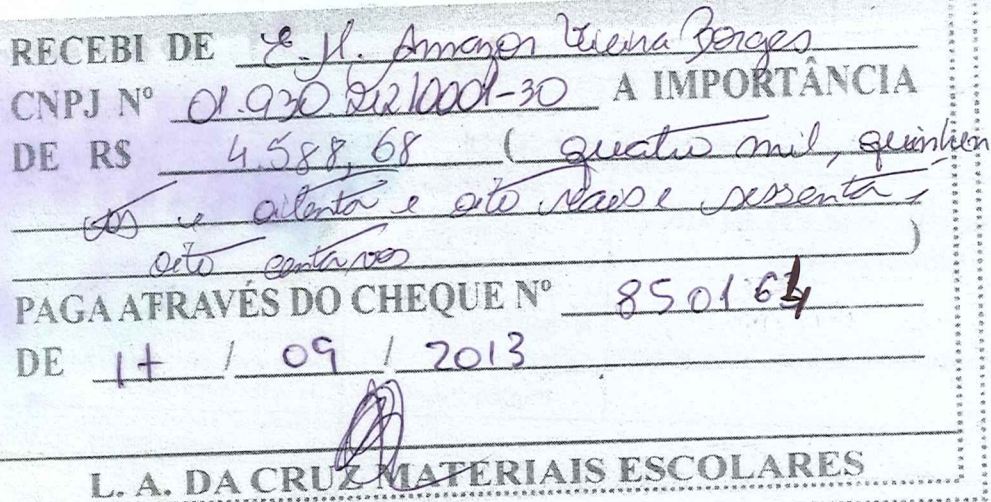 RECEBI DE E. M. Amazor Vieira Borges
CNPJ Nº 01.930.212/0001-30 A IMPORTÂNCIA
DE R$ 4.588,68 ( quatro mil, quinhen
tos e oitenta e oito reais e sessenta e
oito centavos )
PAGA ATRAVÉS DO CHEQUE Nº 850164
DE 17 / 09 / 2013
L. A. DA CRUZ MATERIAIS ESCOLARES